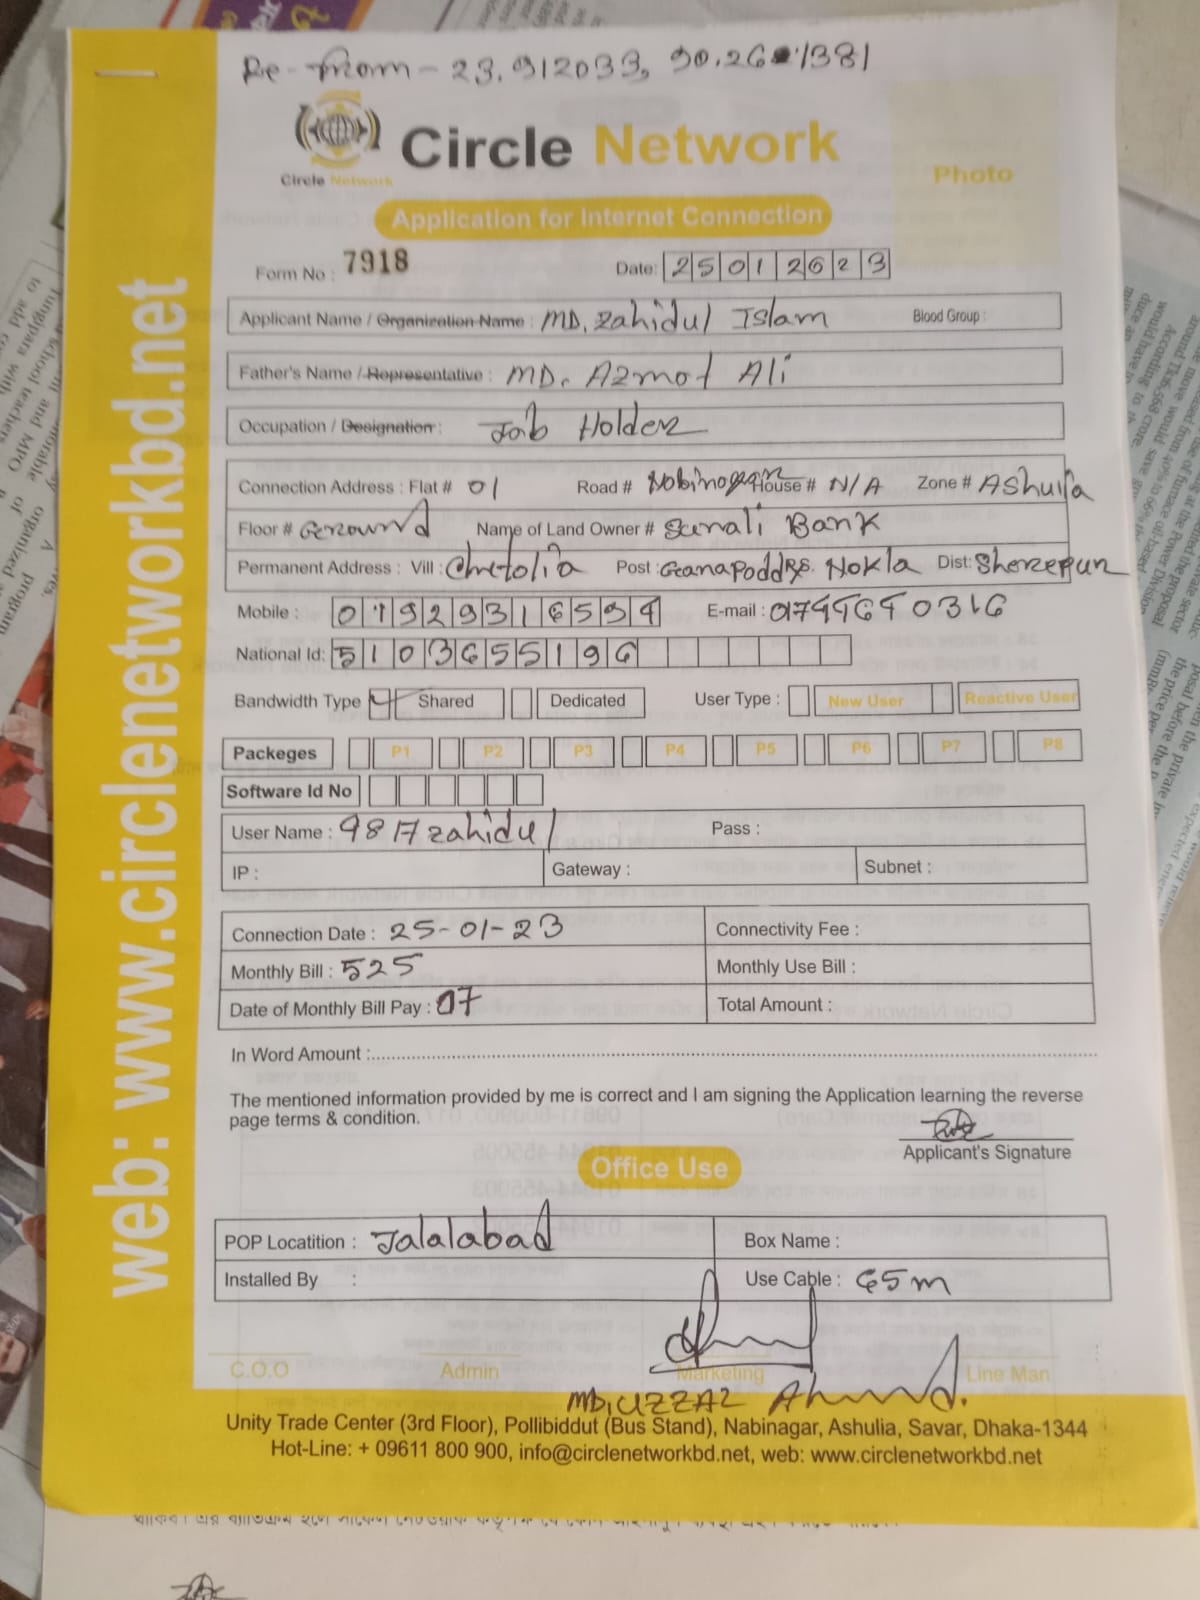 Re-from - 23.912033, 90.26 1381
Circle Network
Circle Network
Photo
Application for Internet Connection
Form No : 7918
Date: 25012023
Applicant Name / Organization Name : MD. Zahidul Islam Blood Group :
Father's Name / Representative : MD. Azmot Ali
Occupation / Designation : Job Holder
Connection Address : Flat # 01 Road # House # N/A Zone # Ashulia
Floor # Ground Name of Land Owner # Sunali Bank
Permanent Address : Vill : Post : Nokla Dist: Sherepur
Mobile : E-mail :
National Id: 5103655196
Bandwidth Type Shared Dedicated User Type : New User Reactive User
Packeges P1 P2 P3 P4 P5 P6 P7 P8
Software Id No
User Name : 9817zahidul Pass :
IP : Gateway : Subnet :
Connection Date : 25-01-23 Connectivity Fee :
Monthly Bill : 525 Monthly Use Bill :
Date of Monthly Bill Pay : 07 Total Amount :
In Word Amount :
The mentioned information provided by me is correct and I am signing the Application learning the reverse
page terms & condition.
Applicant's Signature
Office Use
POP Locatition : Jalalabad Box Name :
Installed By : Use Cable : 65m
C.O.O Admin Marketing Line Man
MD. UZZAL Ahmed.
Unity Trade Center (3rd Floor), Pollibiddut (Bus Stand), Nabinagar, Ashulia, Savar, Dhaka-1344
Hot-Line: + 09611 800 900, info@circlenetworkbd.net, web: www.circlenetworkbd.net
web: www.circlenetworkbd.net